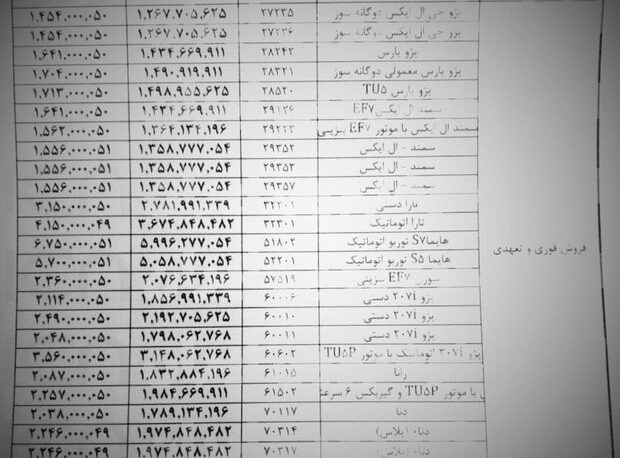 پژو جی ال ایکس دوگانه سوز ۲۷۲۳۵ ۱.۲۶۷.۷۰۵.۶۲۵ ۱.۴۵۴.۰۰۰.۰۵۰
پژو جی ال ایکس دوگانه سوز ۲۷۲۳۶ ۱.۲۶۷.۷۰۵.۶۲۵ ۱.۴۵۴.۰۰۰.۰۵۰
پژو پارس ۲۸۲۴۲ ۱.۴۳۴.۶۶۹.۹۱۱ ۱.۶۴۱.۰۰۰.۰۵۰
پژو پارس معمولی دوگانه سوز ۲۸۳۲۱ ۱.۴۹۰.۹۱۹.۹۱۱ ۱.۷۰۴.۰۰۰.۰۵۰
پژو پارس TU۵ ۲۸۵۲۰ ۱.۴۹۸.۹۵۵.۶۲۵ ۱.۷۱۳.۰۰۰.۰۵۰
سمند ال ایکس EF۷ ۲۹۱۲۶ ۱.۴۳۴.۶۶۹.۹۱۱ ۱.۶۴۱.۰۰۰.۰۵۰
سمند ال ایکس با موتور EF۷ بنزینی ۲۹۲۲۳ ۱.۳۶۴.۱۳۴.۱۹۶ ۱.۵۶۲.۰۰۰.۰۵۰
سمند - ال ایکس ۲۹۳۵۲ ۱.۳۵۸.۷۷۷.۰۵۴ ۱.۵۵۶.۰۰۰.۰۵۱
سمند - ال ایکس ۲۹۳۵۳ ۱.۳۵۸.۷۷۷.۰۵۴ ۱.۵۵۶.۰۰۰.۰۵۱
سمند - ال ایکس ۲۹۳۵۷ ۱.۳۵۸.۷۷۷.۰۵۴ ۱.۵۵۶.۰۰۰.۰۵۱
تارا دستی ۳۲۲۰۱ ۲.۷۸۱.۹۹۱.۳۳۹ ۳.۱۵۰.۰۰۰.۰۵۰
تارا اتوماتیک ۳۲۳۰۱ ۳.۶۷۴.۸۴۸.۴۸۲ ۴.۱۵۰.۰۰۰.۰۴۹
هایما S۷ توربو اتوماتیک ۵۱۸۰۲ ۵.۹۹۶.۲۷۷.۰۵۴ ۶.۷۵۰.۰۰۰.۰۵۱
فروش فوری و تعهدی
هایما S۵ توربو اتوماتیک ۵۲۲۰۱ ۵.۰۵۸.۷۷۷.۰۵۴ ۵.۷۰۰.۰۰۰.۰۵۱
سورن EF۷ بنزینی ۵۷۵۱۹ ۲.۰۷۶.۶۳۴.۱۹۶ ۲.۳۶۰.۰۰۰.۰۵۰
پژو ۲۰۷i دستی ۶۰۰۰۶ ۱.۸۵۶.۹۹۱.۳۳۹ ۲.۱۱۴.۰۰۰.۰۵۰
پژو ۲۰۷i دستی ۶۰۰۱۰ ۲.۱۹۲.۷۰۵.۶۲۵ ۲.۴۹۰.۰۰۰.۰۵۰
پژو ۲۰۷i دستی ۶۰۰۱۱ ۱.۷۹۸.۰۶۲.۷۶۸ ۲.۰۴۸.۰۰۰.۰۵۰
پژو ۲۰۷i اتوماتیک با موتور TU۵P ۶۰۶۰۲ ۳.۱۴۸.۰۶۲.۷۶۸ ۳.۵۶۰.۰۰۰.۰۵۰
رانا ۶۱۰۱۵ ۱.۸۳۲.۸۸۴.۱۹۶ ۲.۰۸۷.۰۰۰.۰۵۰
با موتور TU۵P و گیربکس ۶ سرعته ۶۱۵۰۲ ۱.۹۸۴.۶۶۹.۹۱۱ ۲.۲۵۷.۰۰۰.۰۵۰
دنا ۷۰۱۱۷ ۱.۷۸۹.۱۳۴.۱۹۶ ۲.۰۳۸.۰۰۰.۰۵۰
دنا+ (پلاس) ۷۰۳۱۴ ۱.۹۷۴.۸۴۸.۴۸۲ ۲.۲۴۶.۰۰۰.۰۴۹
دنا+ (پلاس) ۷۰۳۱۷ ۱.۹۷۴.۸۴۸.۴۸۲ ۲.۲۴۶.۰۰۰.۰۴۹